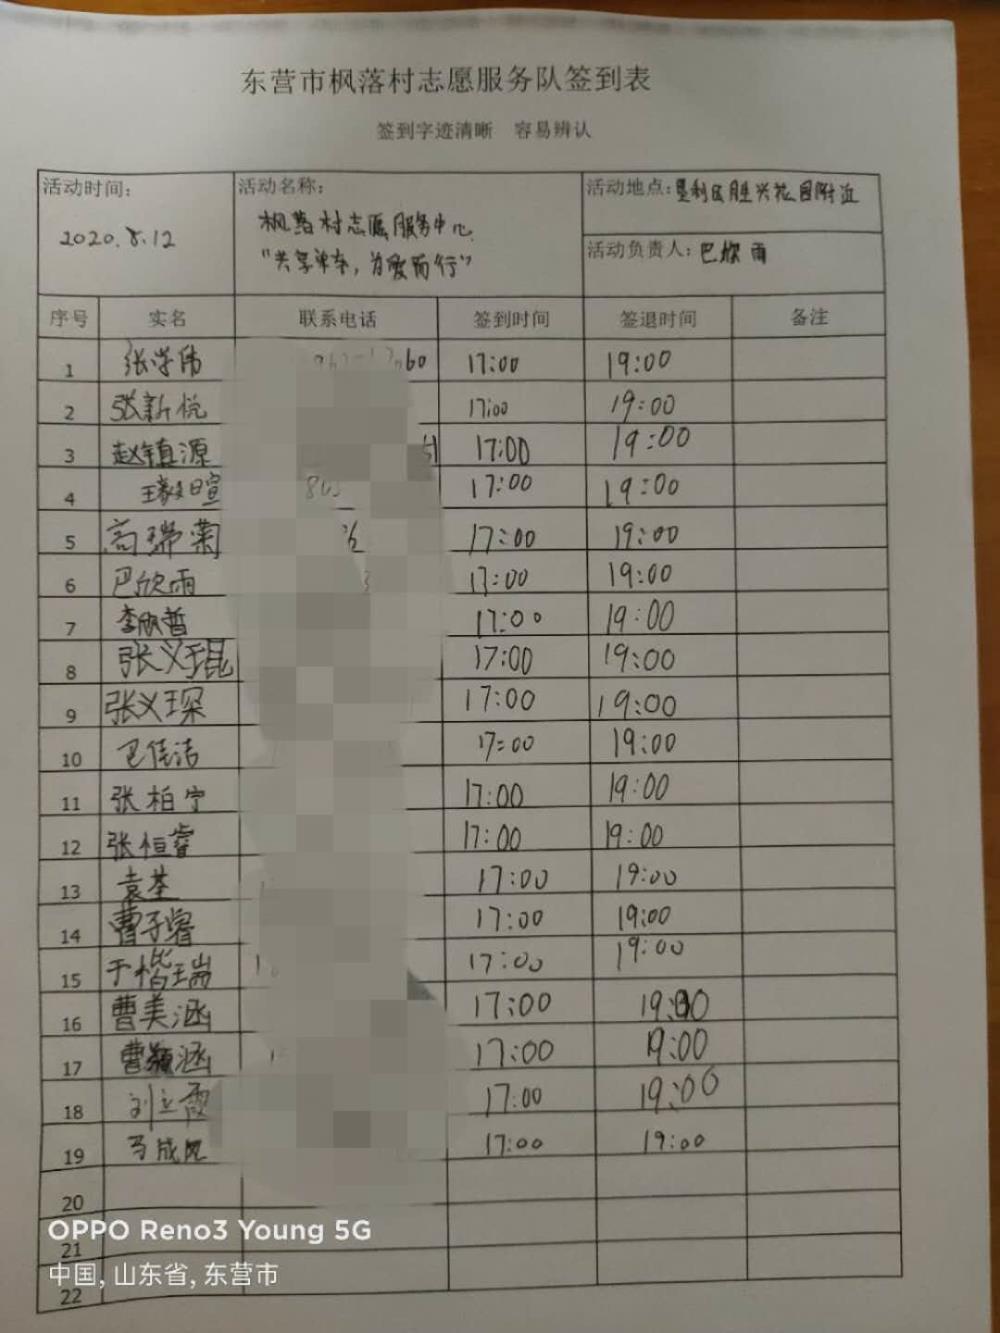 东营市枫落村志愿服务队签到表
签到字迹清晰 容易辨认
活动时间:
2020.8.12
活动名称:
枫落村志愿服务中心
“共享单车，为爱而行”
活动地点:垦利区胜兴花园附近
活动负责人:巴欣雨
序号 实名 联系电话 签到时间 签退时间 备注
1 张学伟 60 17:00 19:00
2 张新悦 17:00 19:00
3 赵镇源 17:00 19:00
4 17:00 19:00
5 高瑞菊 17:00 19:00
6 巴欣雨 17:00 19:00
7 李欣哲 17:00 19:00
8 张义琨 17:00 19:00
9 张义琛 17:00 19:00
10 巴佳洁 17:00 19:00
11 张柏宁 17:00 19:00
12 张恒睿 17:00 19:00
13 袁荃 17:00 19:00
14 曹子睿 17:00 19:00
15 于楷瑞 17:00 19:00
16 曹美涵 17:00 19:00
17 曹颖涵 17:00 19:00
18 刘立霞 17:00 19:00
19 马成凤 17:00 19:00
20
21
22
OPPO Reno3 Young 5G
中国, 山东省, 东营市